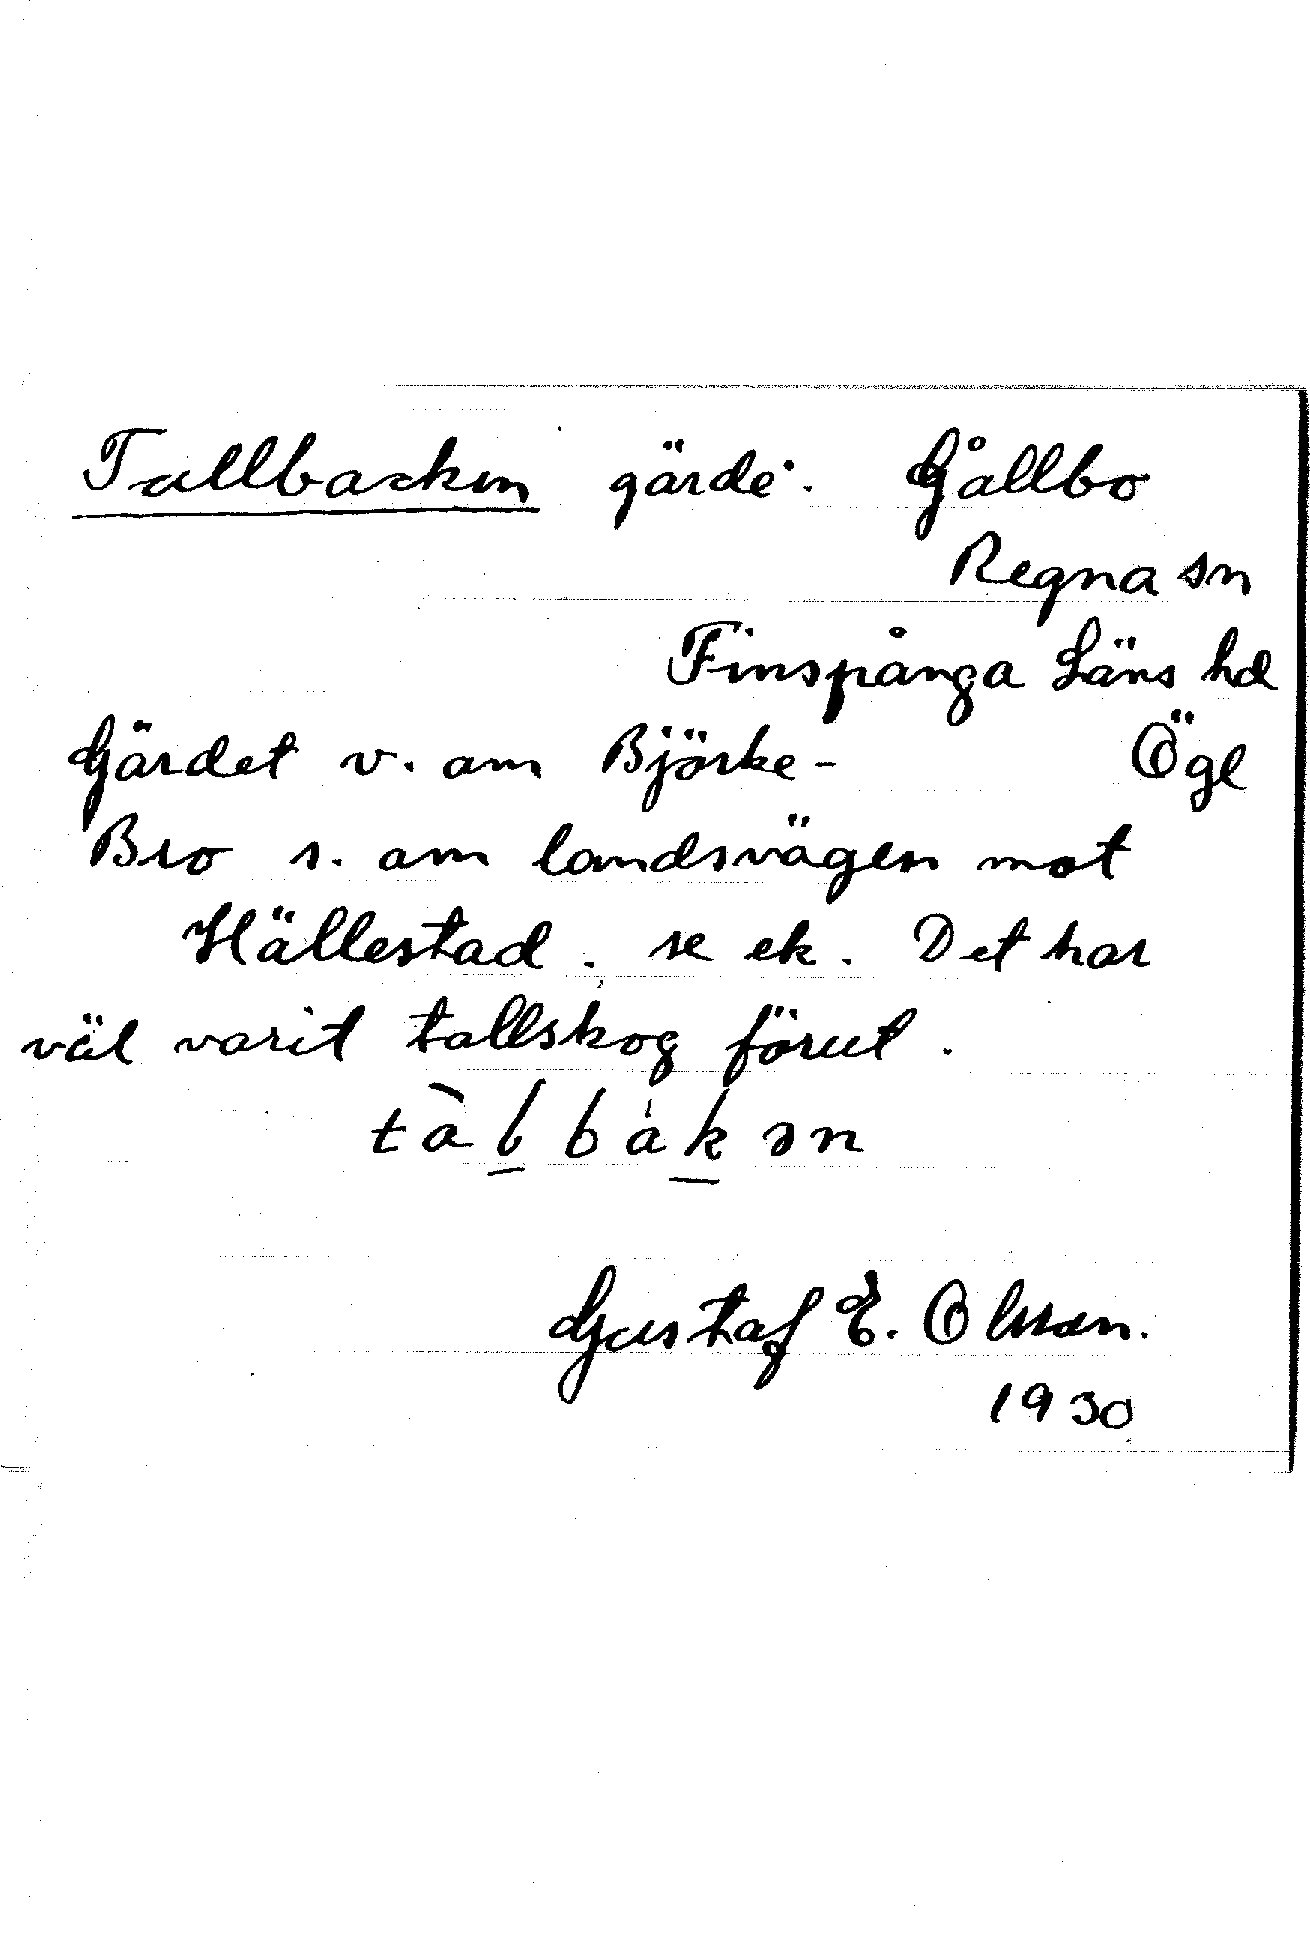 Tallbacken gärde. Gållbo
Regna sn
Finspånga Läns hd
Gärdet v. om Björke- Ögl
Bro s. om landsvägen mot
Hällestad. se ek. Det har
väl varit tallskog förut.
tàlbak ən
Gustaf E. Olsson.
1930